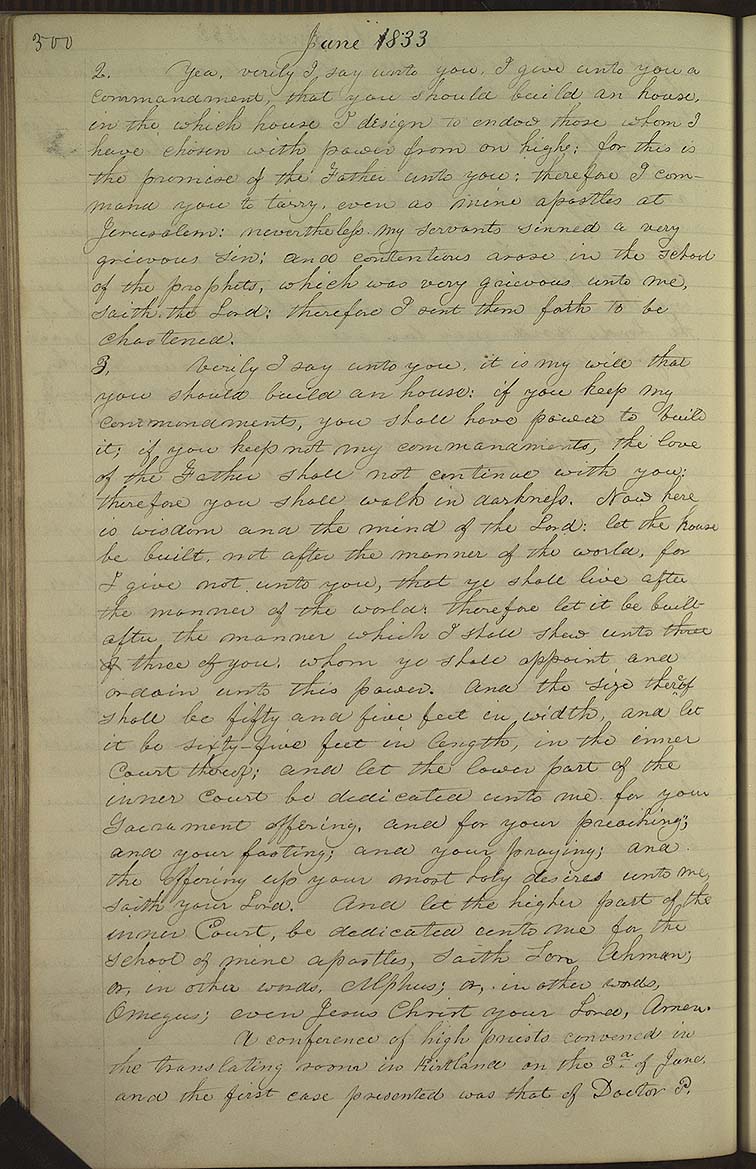 300 June 1833
2. Yea, verily I, say unto you, I give unto you a
commandment, that you should build an house,
in the which house I design to endow those whom I
have chosen with power from on high; for this is
the promise of the Father unto you; therefore I com-
mand you to tarry, even as mine apostles at
Jerusalem: nevertheless my servants sinned a very
grievous sin; and contentions arose in the school
of the prophets, which was very grievous unto me,
saith the Lord; therefore I sent them forth to be
chastened.
3. Verily I say unto you, it is my will that
you should build an house: if you keep my
commandments, you shall have power to build
it; if you keep not my commandments, the love
of the Father shall not continue with you;
therefore you shall walk in darkness. Now here
is wisdom and the mind of the Lord: let the house
be built, not after the manner of the world, for
I give not unto you, that ye shall live after
the manner of the world; therefore let it be built
after the manner which I shall shew unto three
of three of you, whom ye shall appoint and
ordain unto this power. And the size thereof
shall be fifty and five feet in width, and let
it be sixty-five feet in length, in the inner
Court thereof; and let the lower part of the
inner court be dedicated unto me for your
Sacrament offering, and for your preaching;
and your fasting; and your praying; and
the offering up your most holy desires unto me,
saith your Lord. And let the higher part of the
inner Court, be dedicated unto me for the
school of mine apostles, saith Son Ahman;
or, in other words, Alphus; or, in other words,
Omegus; even Jesus Christ your Lord, Amen.
A conference of high priests convened in
the translating room in Kirtland on the 3d of June.
and the first case presented was that of Doctor P.